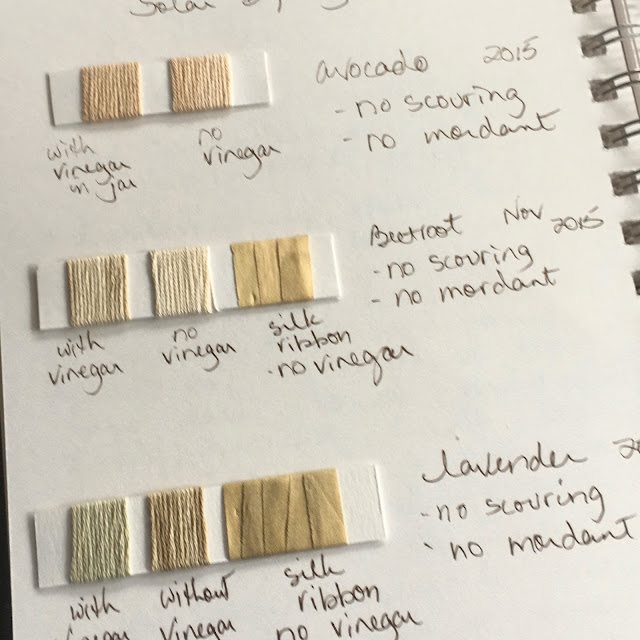 Solar
avocado 2015
- no scouring
- no mordant
with
vinegar
in jar
no
vinegar
Beetroot Nov 2015
- no scouring
- no mordant
with
vinegar
no
vinegar
silk
ribbon
- no vinegar
lavender
- no scouring
- no mordant
with
vinegar
without
vinegar
silk
ribbon
no vinegar